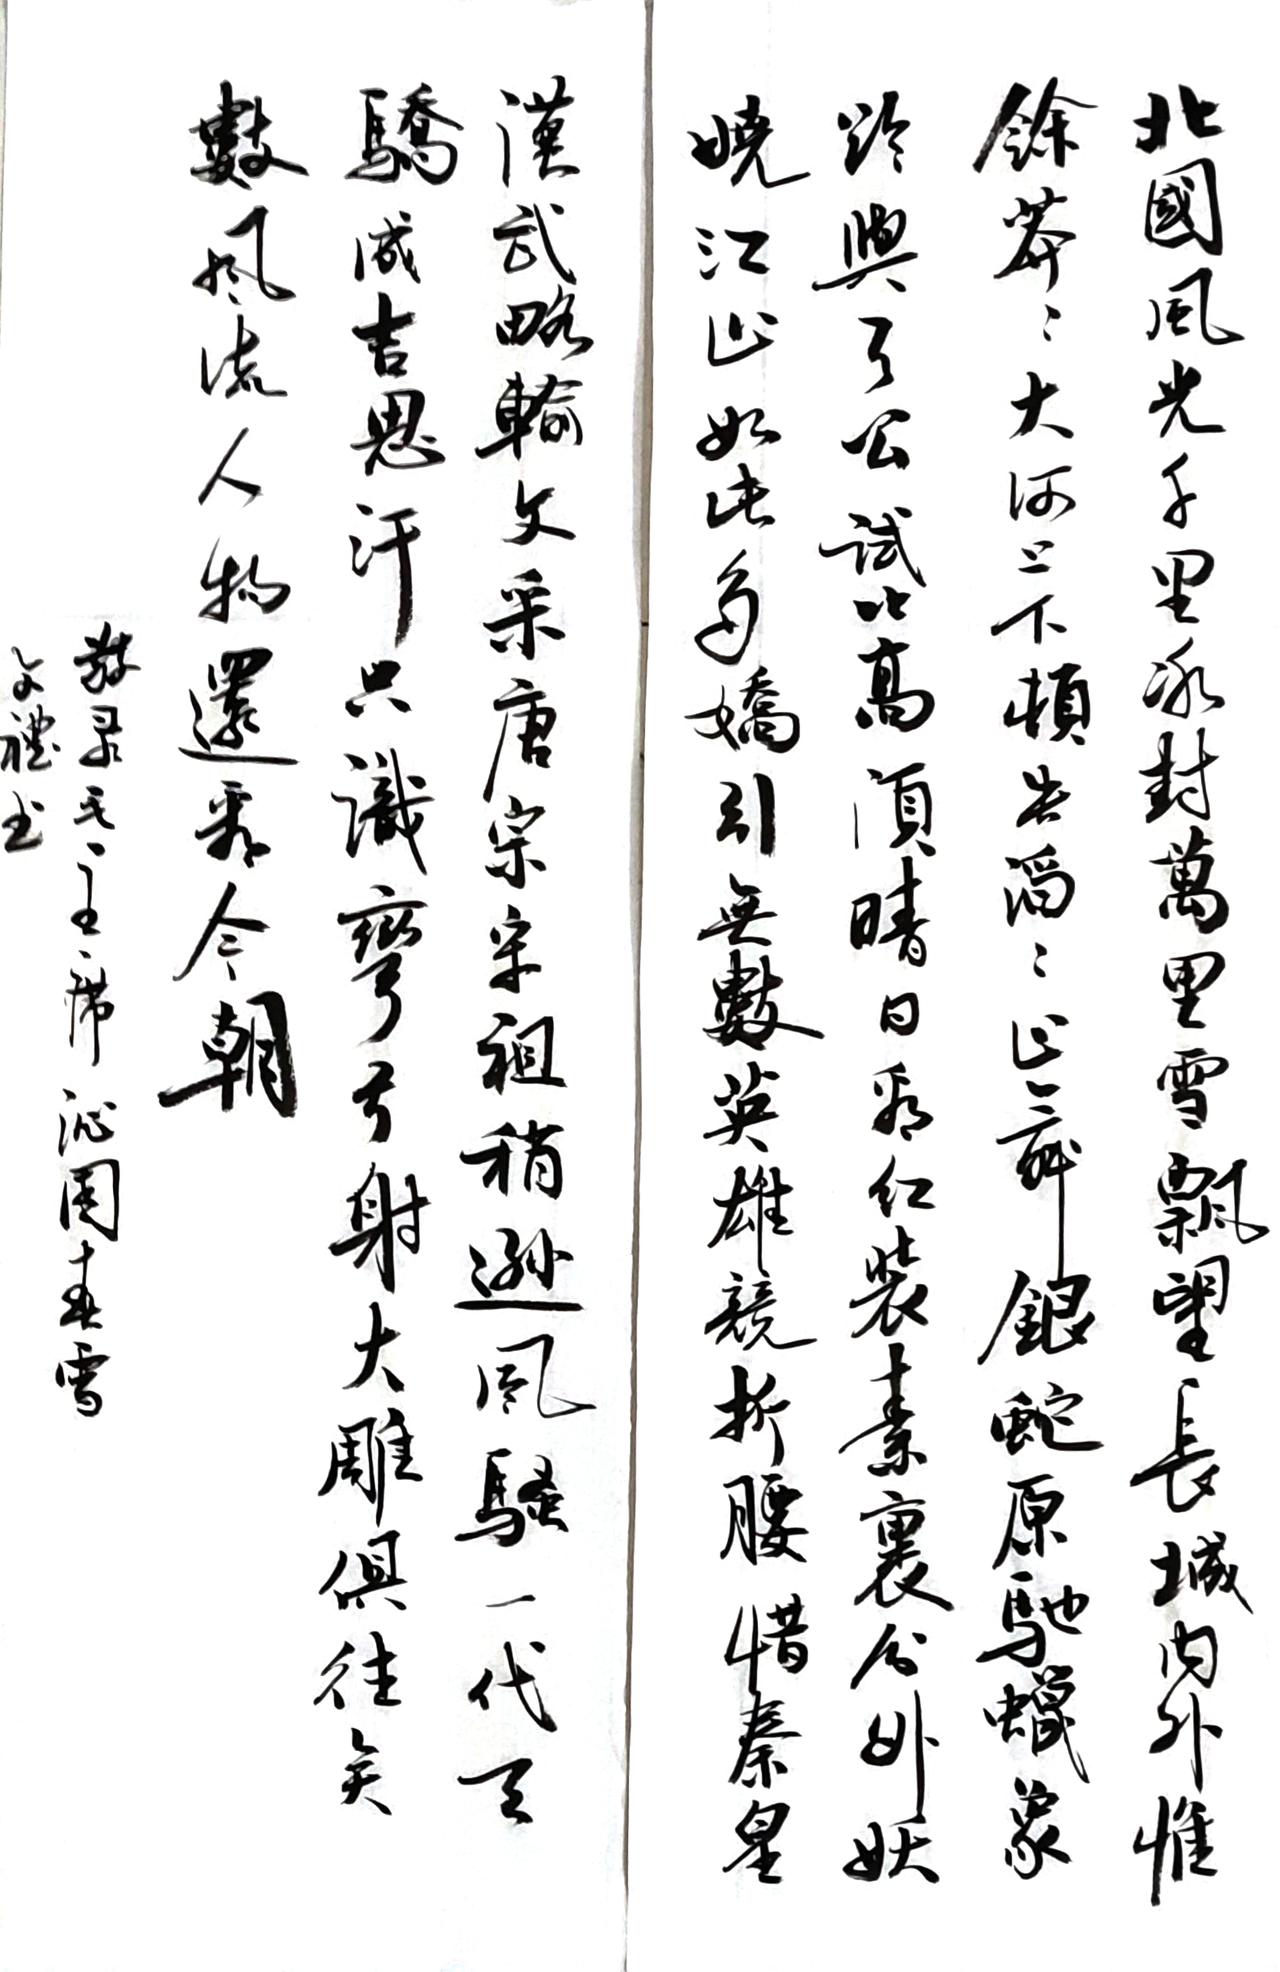 北國風光千里冰封萬里雪飄望長城內外惟
餘莽〻大河上下頓失滔〻山舞銀蛇原馳蠟象
欲與天公試比高須晴日看紅裝素裹分外妖
嬈江山如此多嬌引無數英雄競折腰惜秦皇
漢武略輸文采唐宗宋祖稍遜風騷一代天
驕成吉思汗只識彎弓射大雕俱往矣
數風流人物還看今朝
敬录毛主席沁園春雪
文禮书